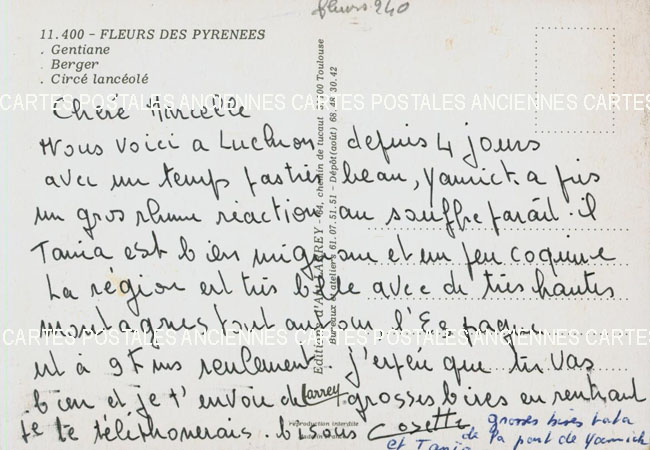 fleurs 240
11.400 - FLEURS DES PYRENEES
. Gentiane
. Berger
. Circé lancéolé
CARTES POSTALES ANCIENNES CARTES POSTALES ANCIENNES CARTES
Chéré Marcelle
Nous voici a Luchon depuis 4 jours
avec un temps pas très beau, Yannick a pris
un gros rhume réaction au souffre parait-il
Tania est bien mignonne et un peu coquine
La région est très belle avec de très hautes
montagnes tout autour, l'Espagne
est à 9 Kms seulement. j'espère que tu vas
bien et je t'envoie de grosses bises en rentrant
je te téléphonerais. bisous Cosette
grosses bises tata
de la part de Yannick
et Tania
Editions d'Art LARREY - 64, chemin de tucaut 31100 Toulouse
Bureaux et ateliers 61.07.51.51 - Dépôt(août) 68.48.30.42
larrey
reproduction interdite
made in France
CARTES POSTALES ANCIENNES CARTES POSTALES ANCIENNES CARTES